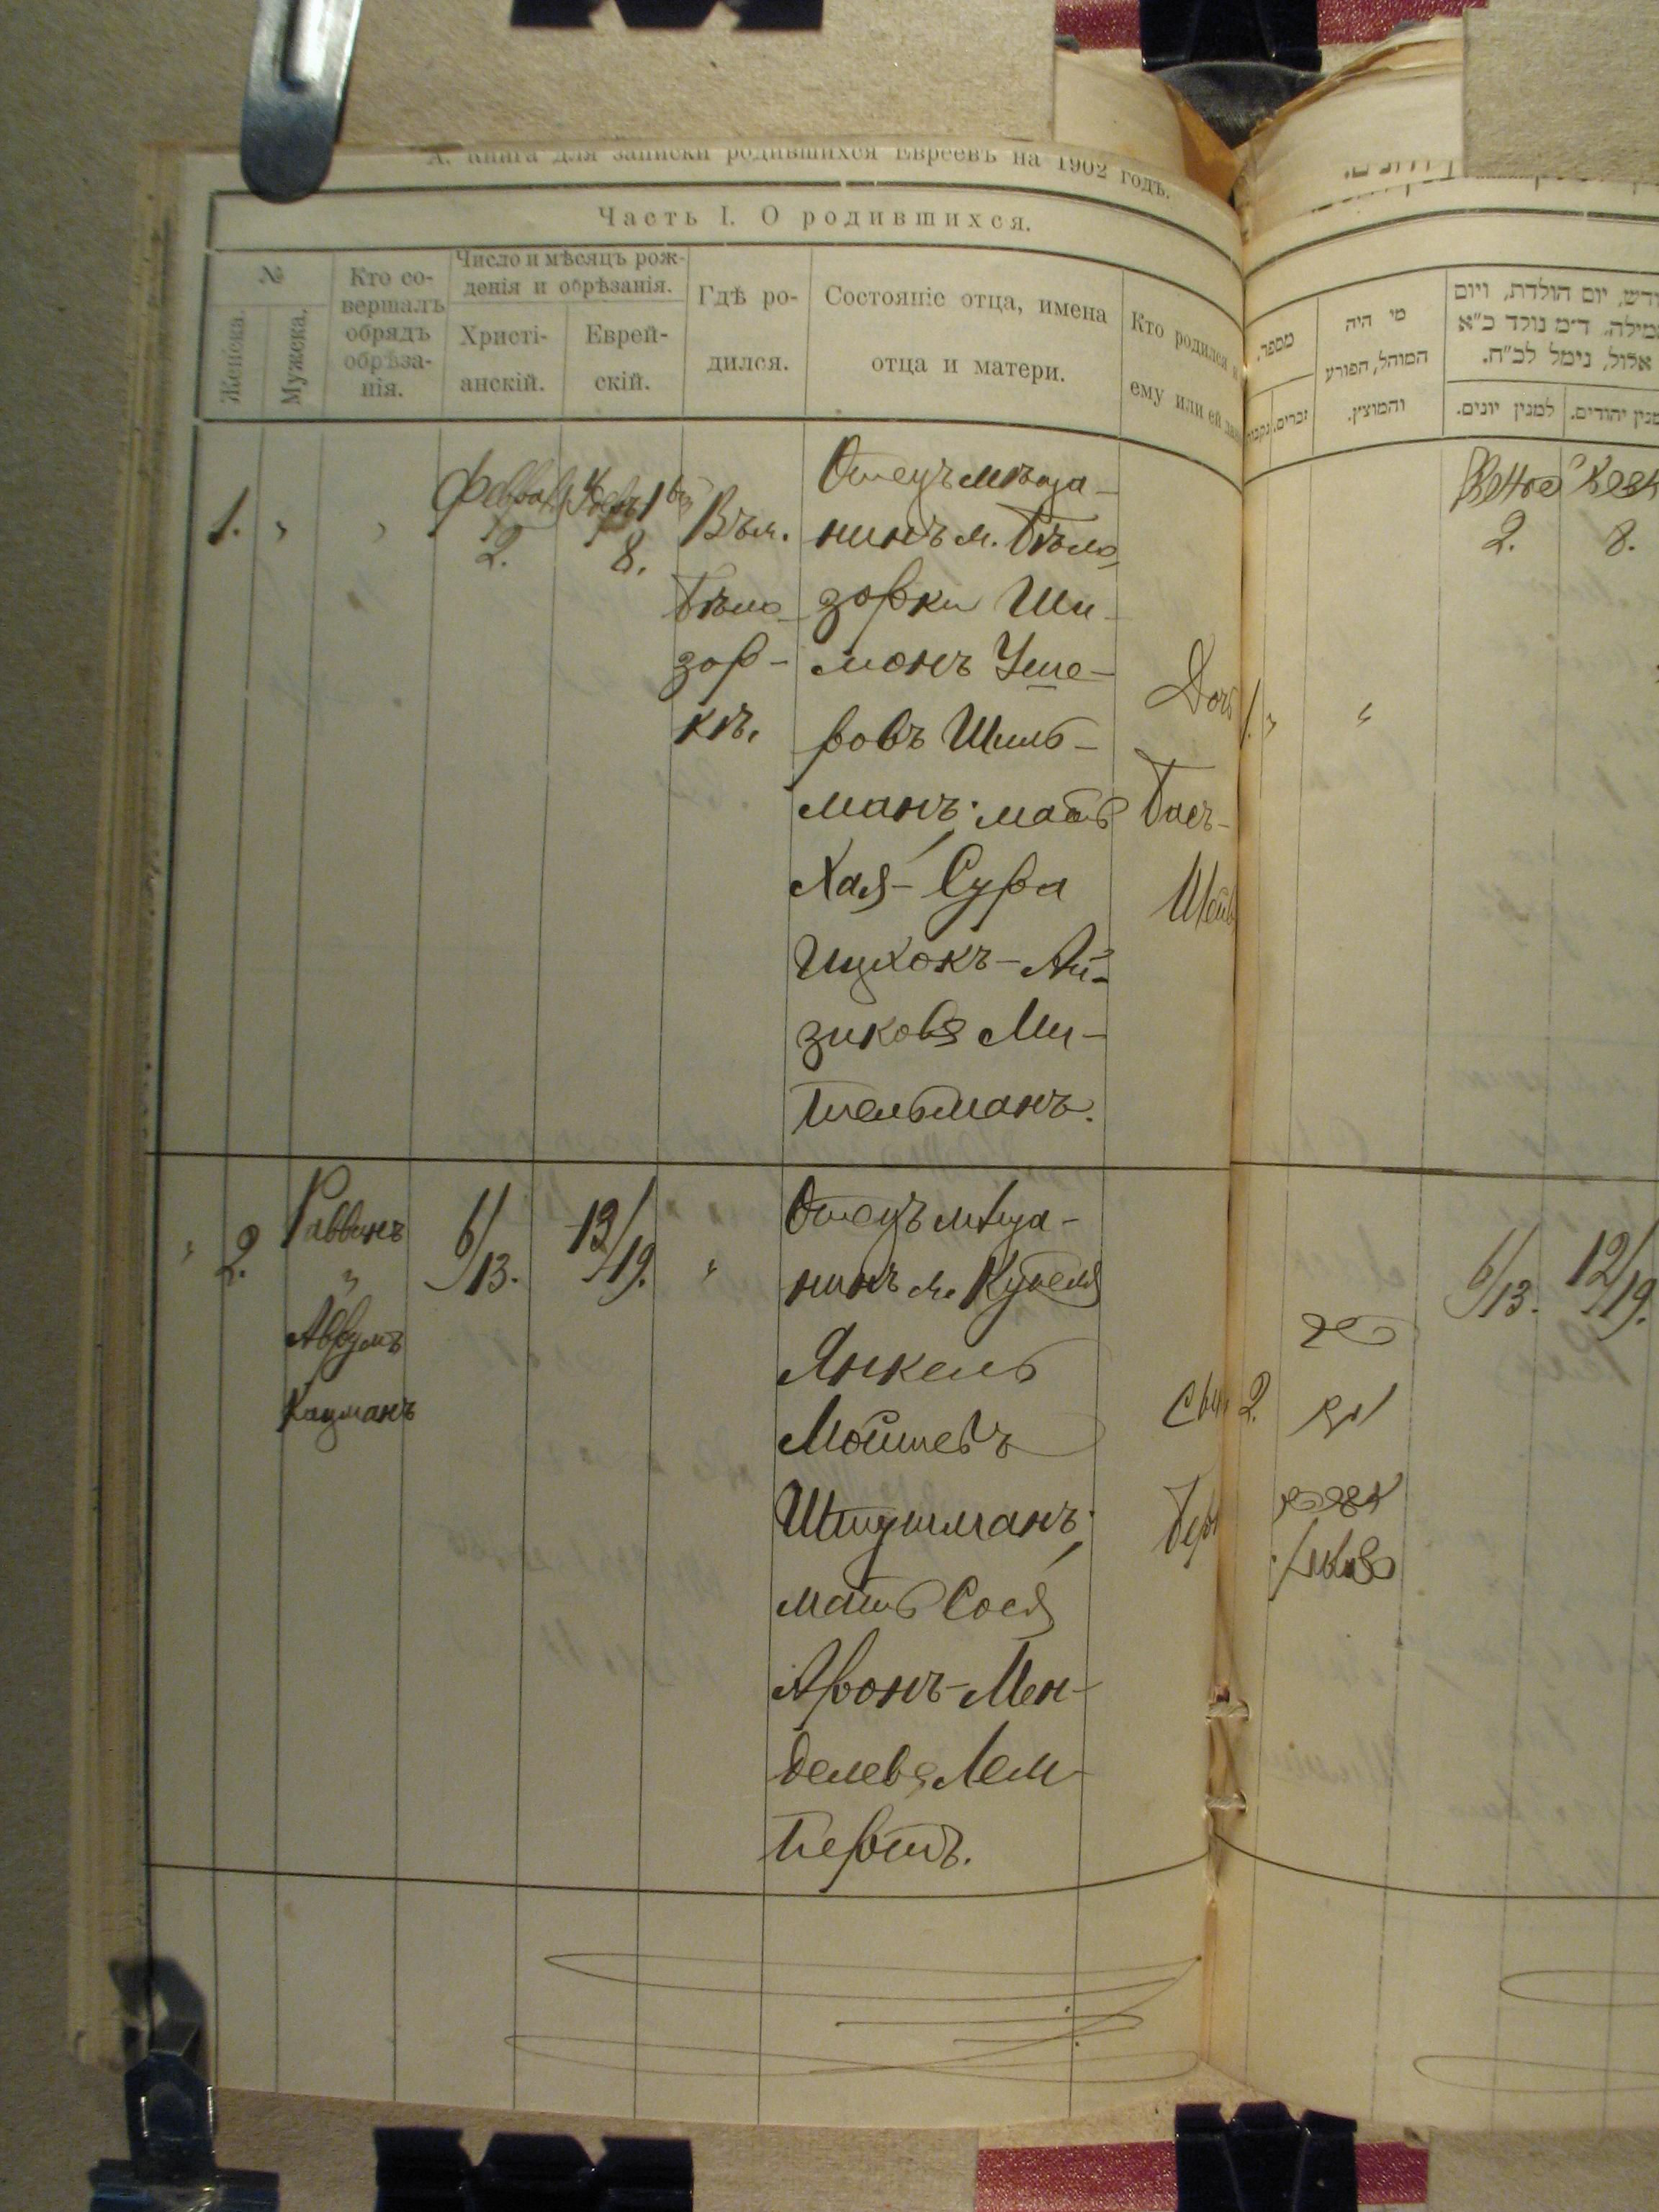 А. Книга для записки родившихся Евреевъ на 1902 годъ.
Часть I. О родившихся.
№
Женска.
Мужска.
Кто со-
вершалъ
обрядъ
обрѣза-
нія.
Число и мѣсяцъ рож-
денія и обрѣзанія.
Христі-
анскій.
Еврей-
скій.
Гдѣ ро-
дился.
Состояніе отца, имена
отца и матери.
Кто родился и
ему или ей дано
1.
2.
8.
Въ м.
Бѣло-
зор-
кѣ.
Отецъ мѣща-
нинъ м. Бѣло-
зорки Ши-
монъ Уше-
ровъ Шиль-
манъ; мать
Хая-Сура
Ицхокъ-Ай-
зикова Ми-
тельманъ.
Дочь
Бась-
Шейв
" 2.
Раввинъ
"
Аврумъ
Кацманъ
6/13.
/19.
"
Отецъ мѣща-
нинъ м. Купеля
Янкель
Мойшевъ
Штушманъ;
мать Сося
Аронъ-Мен-
делева Лем-
бертъ.
Сын
Бер
מספר.
זכרים.
מי היה
המוהל, הפורע
והמוצץ.
ודש, יום הולדת, ויום
מילה. ד"מ נולד כ"א
אלול, נימל לכ"ח.
למנין יונים.
מנין יהודים.
2.
8.
1.
2.
6/13.
12/19.